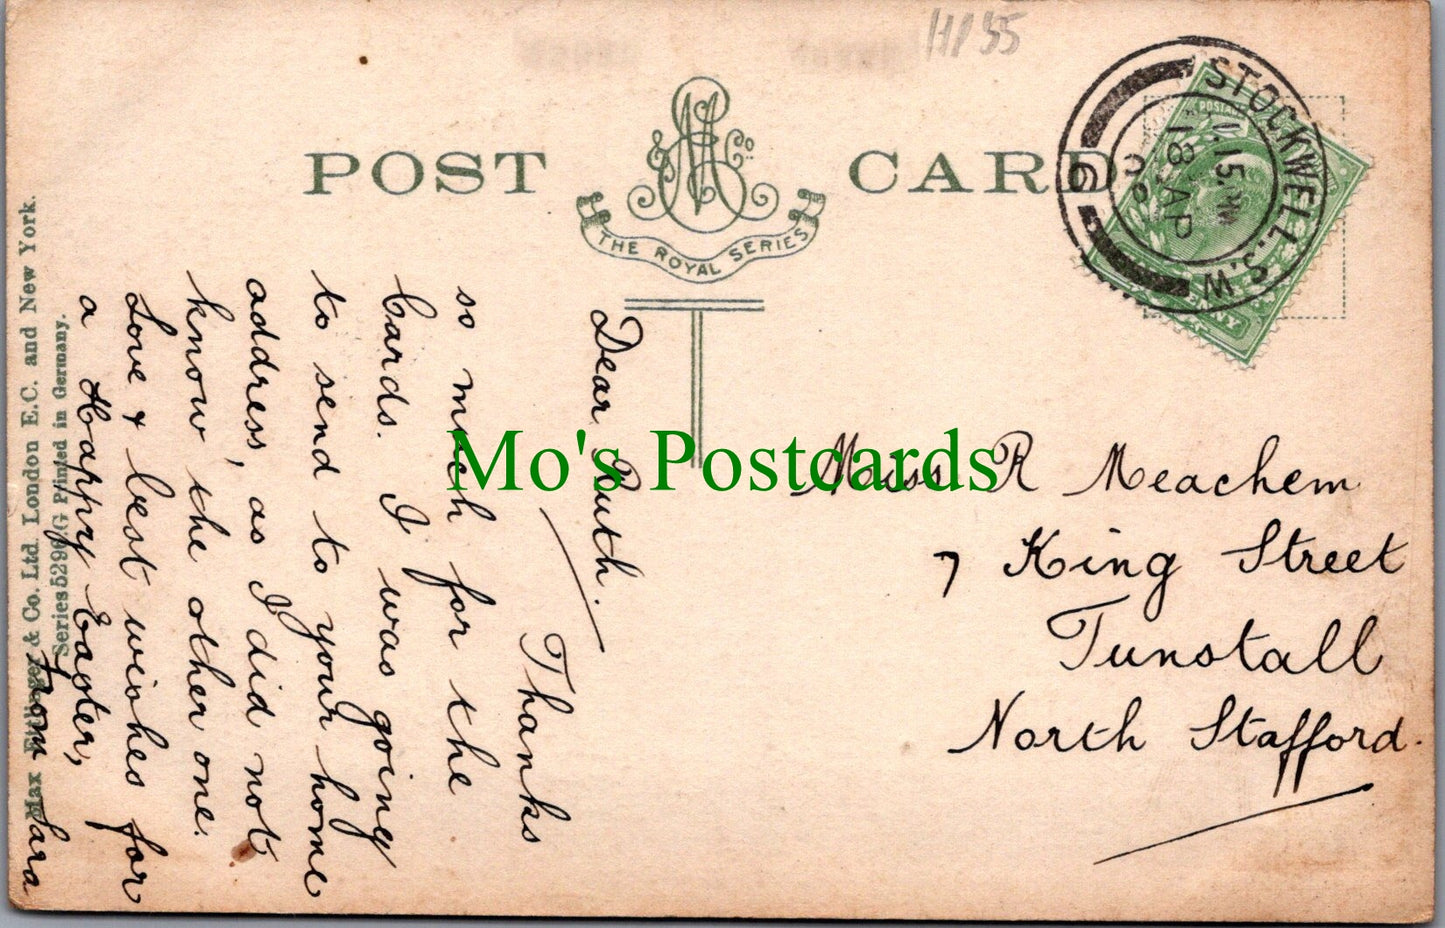 HP55
POST CARD
& Co.
THE ROYAL SERIES
STOCKWELL. S.W.
11.15
18 AP
08
6
POSTAGE
Dear Ruth.
Thanks
so much for the
Cards. I was going
to send to your home
address, as I did not
know the other one.
Love & best wishes for
a Happy Easter,
From Sara
Miss R Meachem
7 King Street
Tunstall
North Stafford.
Max Ettlinger & Co. Ltd. London E.C. and New York.
Printed in Germany.
Mo's Postcards